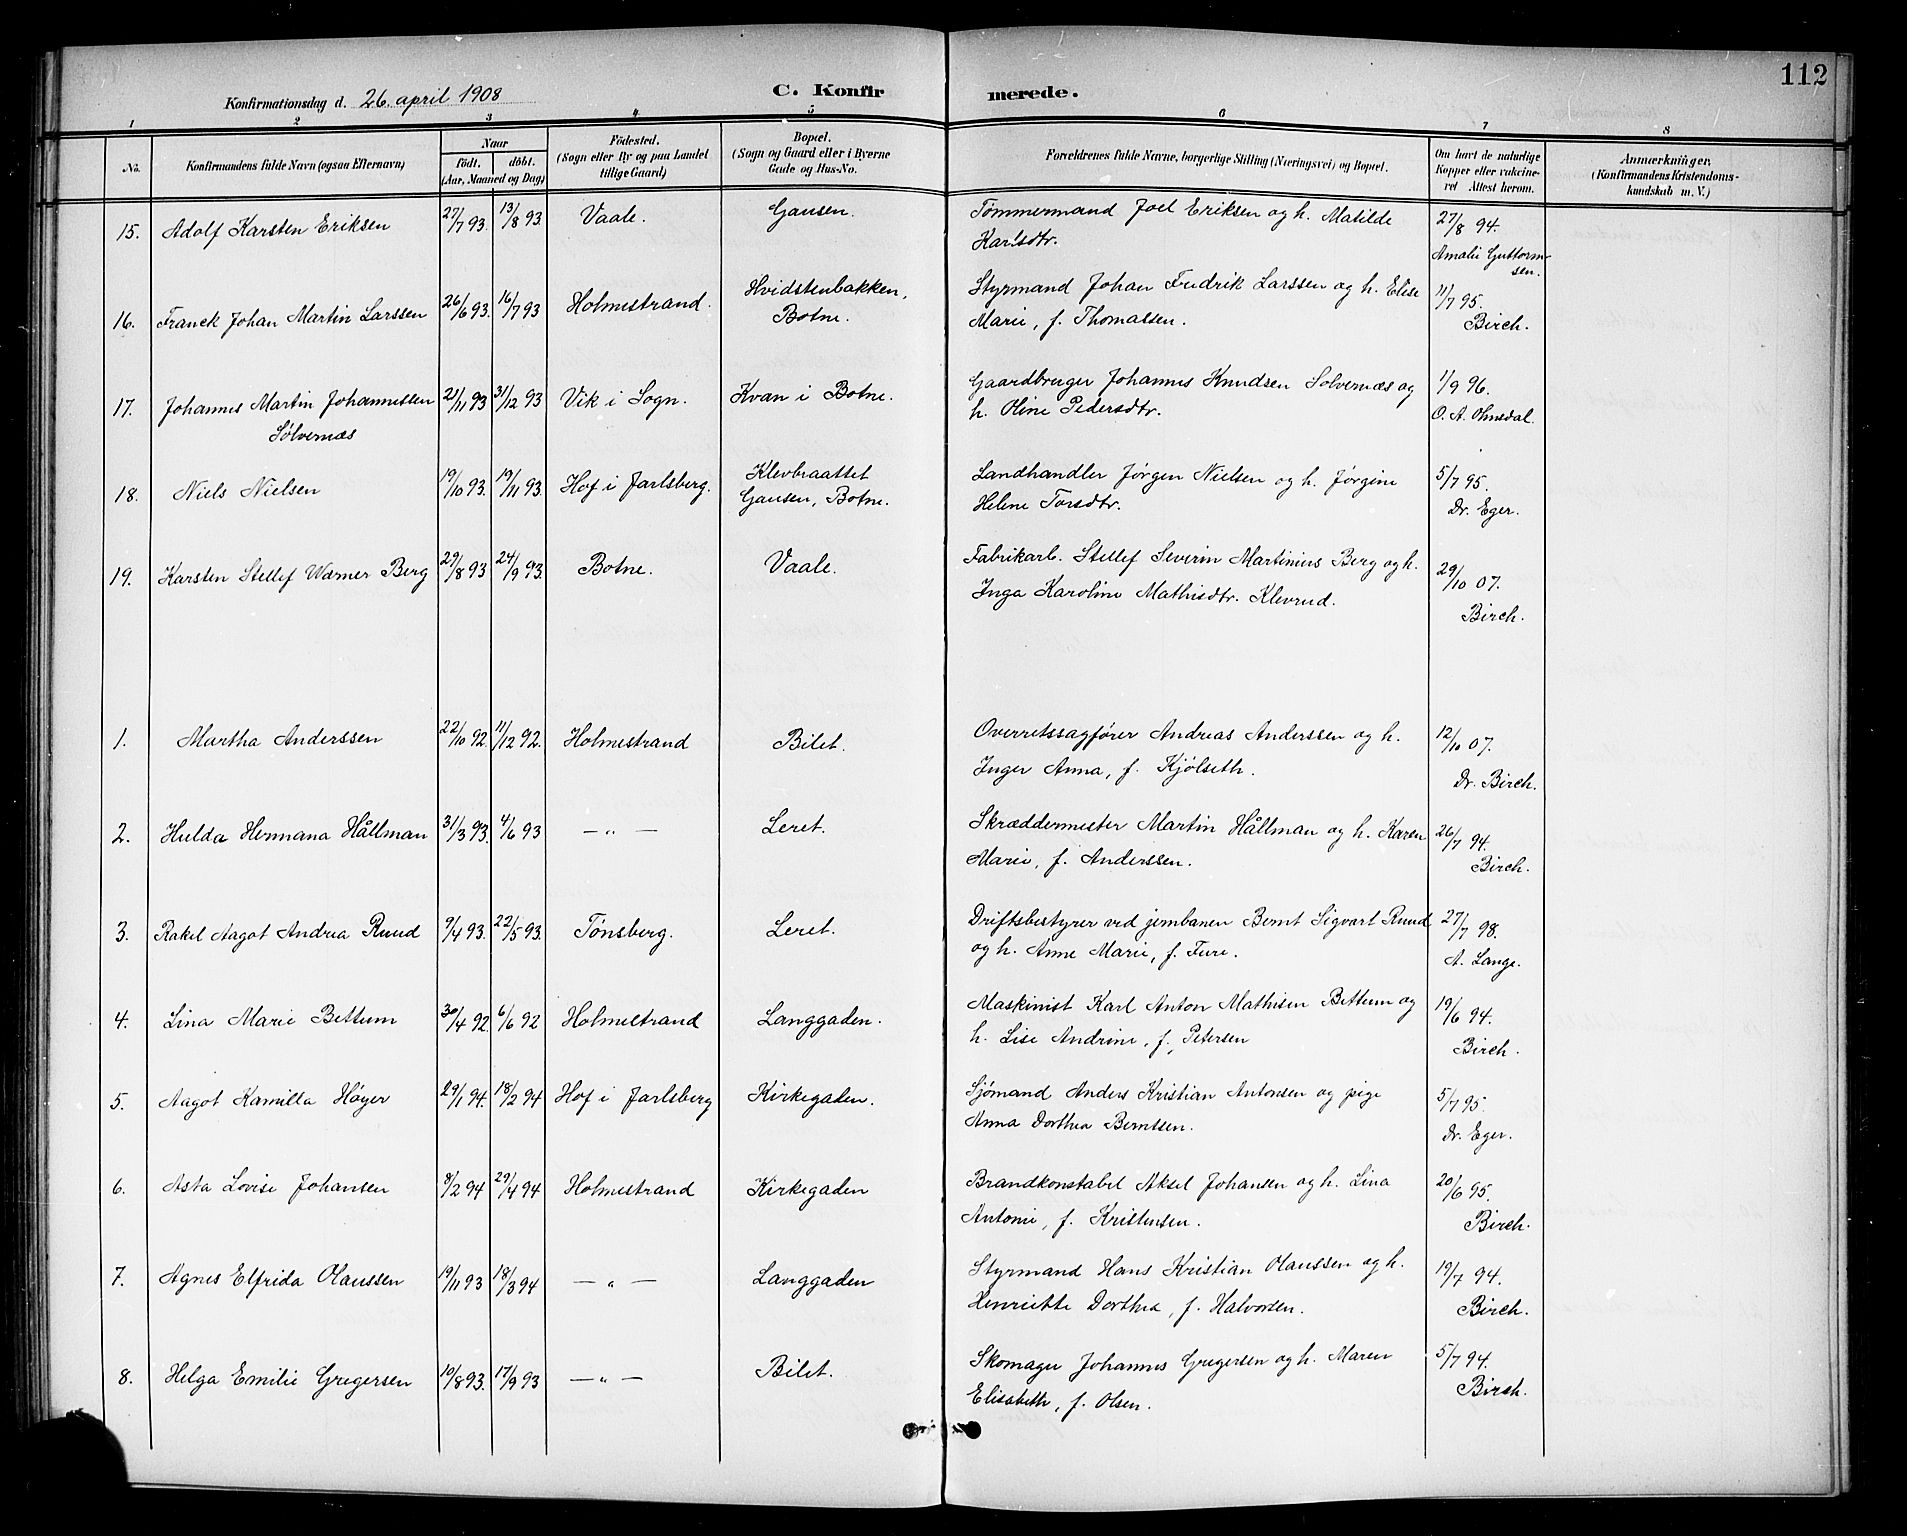 112
Konfirmationsdag d. 26. april 1908
C. Konfir merede.
1 2 3 4 5 6 7 8
No.
Konfirmandens fulde Navn (ogsaa Efternavn)
Naar
født. døbt.
(Aar, Maaned og Dag)
Fødested.
(Sogn eller By og paa Landet
tillige Gaard)
Bopæl.
(Sogn og Gaard eller i Byerne
Gade og Hus-No.
Forældrenes fulde Navne, borgerlige Stilling (Næringsvei) og Bopæl.
Om havt de naturlige
Kopper eller vakcine-
ret Attest herom.
Anmærkninger.
(Konfirmandens Kristendoms-
kundskab m. V.)
15. Adolf Karsten Eriksen 27/7 93. 13/8 93. Vaale. Gausen. Tømmermand Joel Eriksen og h. Matilde 27/8 94.
Karlsdtr. Amalie Guttorm-
sen.
16. Franck Johan Martin Larssen 26/6 93. 16/7 93 Holmestrand. Hvidstenbakken, Styrmand Johan Fredrik Larssen og h. Elise 11/7 95.
Botne. Marie, f. Thomassen. Birch.
17. Johannes Martin Johannessen 21/11 93 31/12 93 Vik i Sogn. Kvan i Botne. Gaardbruger Johannes Knudsen Solvernæs og 1/9 96.
Sølvernæs h. Oline Pedersdtr. O. A. Ohnsdal.
18. Niels Nielsen 19/10 93. 19/11 93. Hof i Jarlsberg. Klevbraattet Landhandler Jørgen Nielsen og h. Jørgine 5/7 95.
Gausen, Botne. Helene Torsdtr. Dr. Eger.
19. Karsten Stellef Wærner Berg 29/8 93 24/9 93. Botne. Vaale. Fabrikarb. Stellef Severin Martinius Berg og h. 29/10 07.
Inga Karoline Mathisdtr. Klevrud. Birch.
1. Martha Anderssen 22/10 92. 11/12 92. Holmestrand Bilet. Overretssagfører Andreas Anderssen og h. 12/10 07.
Inger Anna, f. Kjølseth. Dr. Birch.
2. Hulda Hermana Hållman 31/3 93. 4/6 93 — „ — Leret. Skræddermester Martin Hållman og h. Karen 26/7 94.
Marie, f. Anderssen. Birch.
3. Rakel Aagot Andrea Ruud 9/4 93. 22/5 93. Tønsberg. Leret. Driftsbestyrer ved jernbanen Bernt Sigvart Ruud 27/7 98.
og h. Anne Marie, f. Fure. A. Lange.
4. Lina Marie Bettum 30/4 92. 6/6 92 Holmestrand Langgaden. Maskinist Karl Anton Mathisen Bettum og 19/6 94.
h. Lise Andrine, f. Petersen Birch.
5. Aagot Kamilla Høyer 29/1 94. 18/2 94 Hof i Jarlsberg Kirkegaden. Sjømand Anders Kristian Antonsen og pige 5/7 95.
Anna Dorthea Berntsen. Dr. Eger.
6. Asta Lovise Johansen 8/2 94 29/4 94 Holmestrand Kirkegaden Brandkonstabel Aksel Johansen og h. Lina 20/6 95.
Antonie, f. Kristensen. Birch.
7. Agnes Elfrida Olaussen 19/11 93 18/3 94 — „ — Langgaden Styrmand Hans Kristian Olaussen og h. 19/7 94.
Henriette Dorthea, f. Halvorsen. Birch.
8. Helga Emilie Gregersen 10/8 93. 17/9 93 — „ — Bilet. Skomager Johannes Gregersen og h. Maren 5/7 94.
Elisabeth, f. Olsen. Birch.